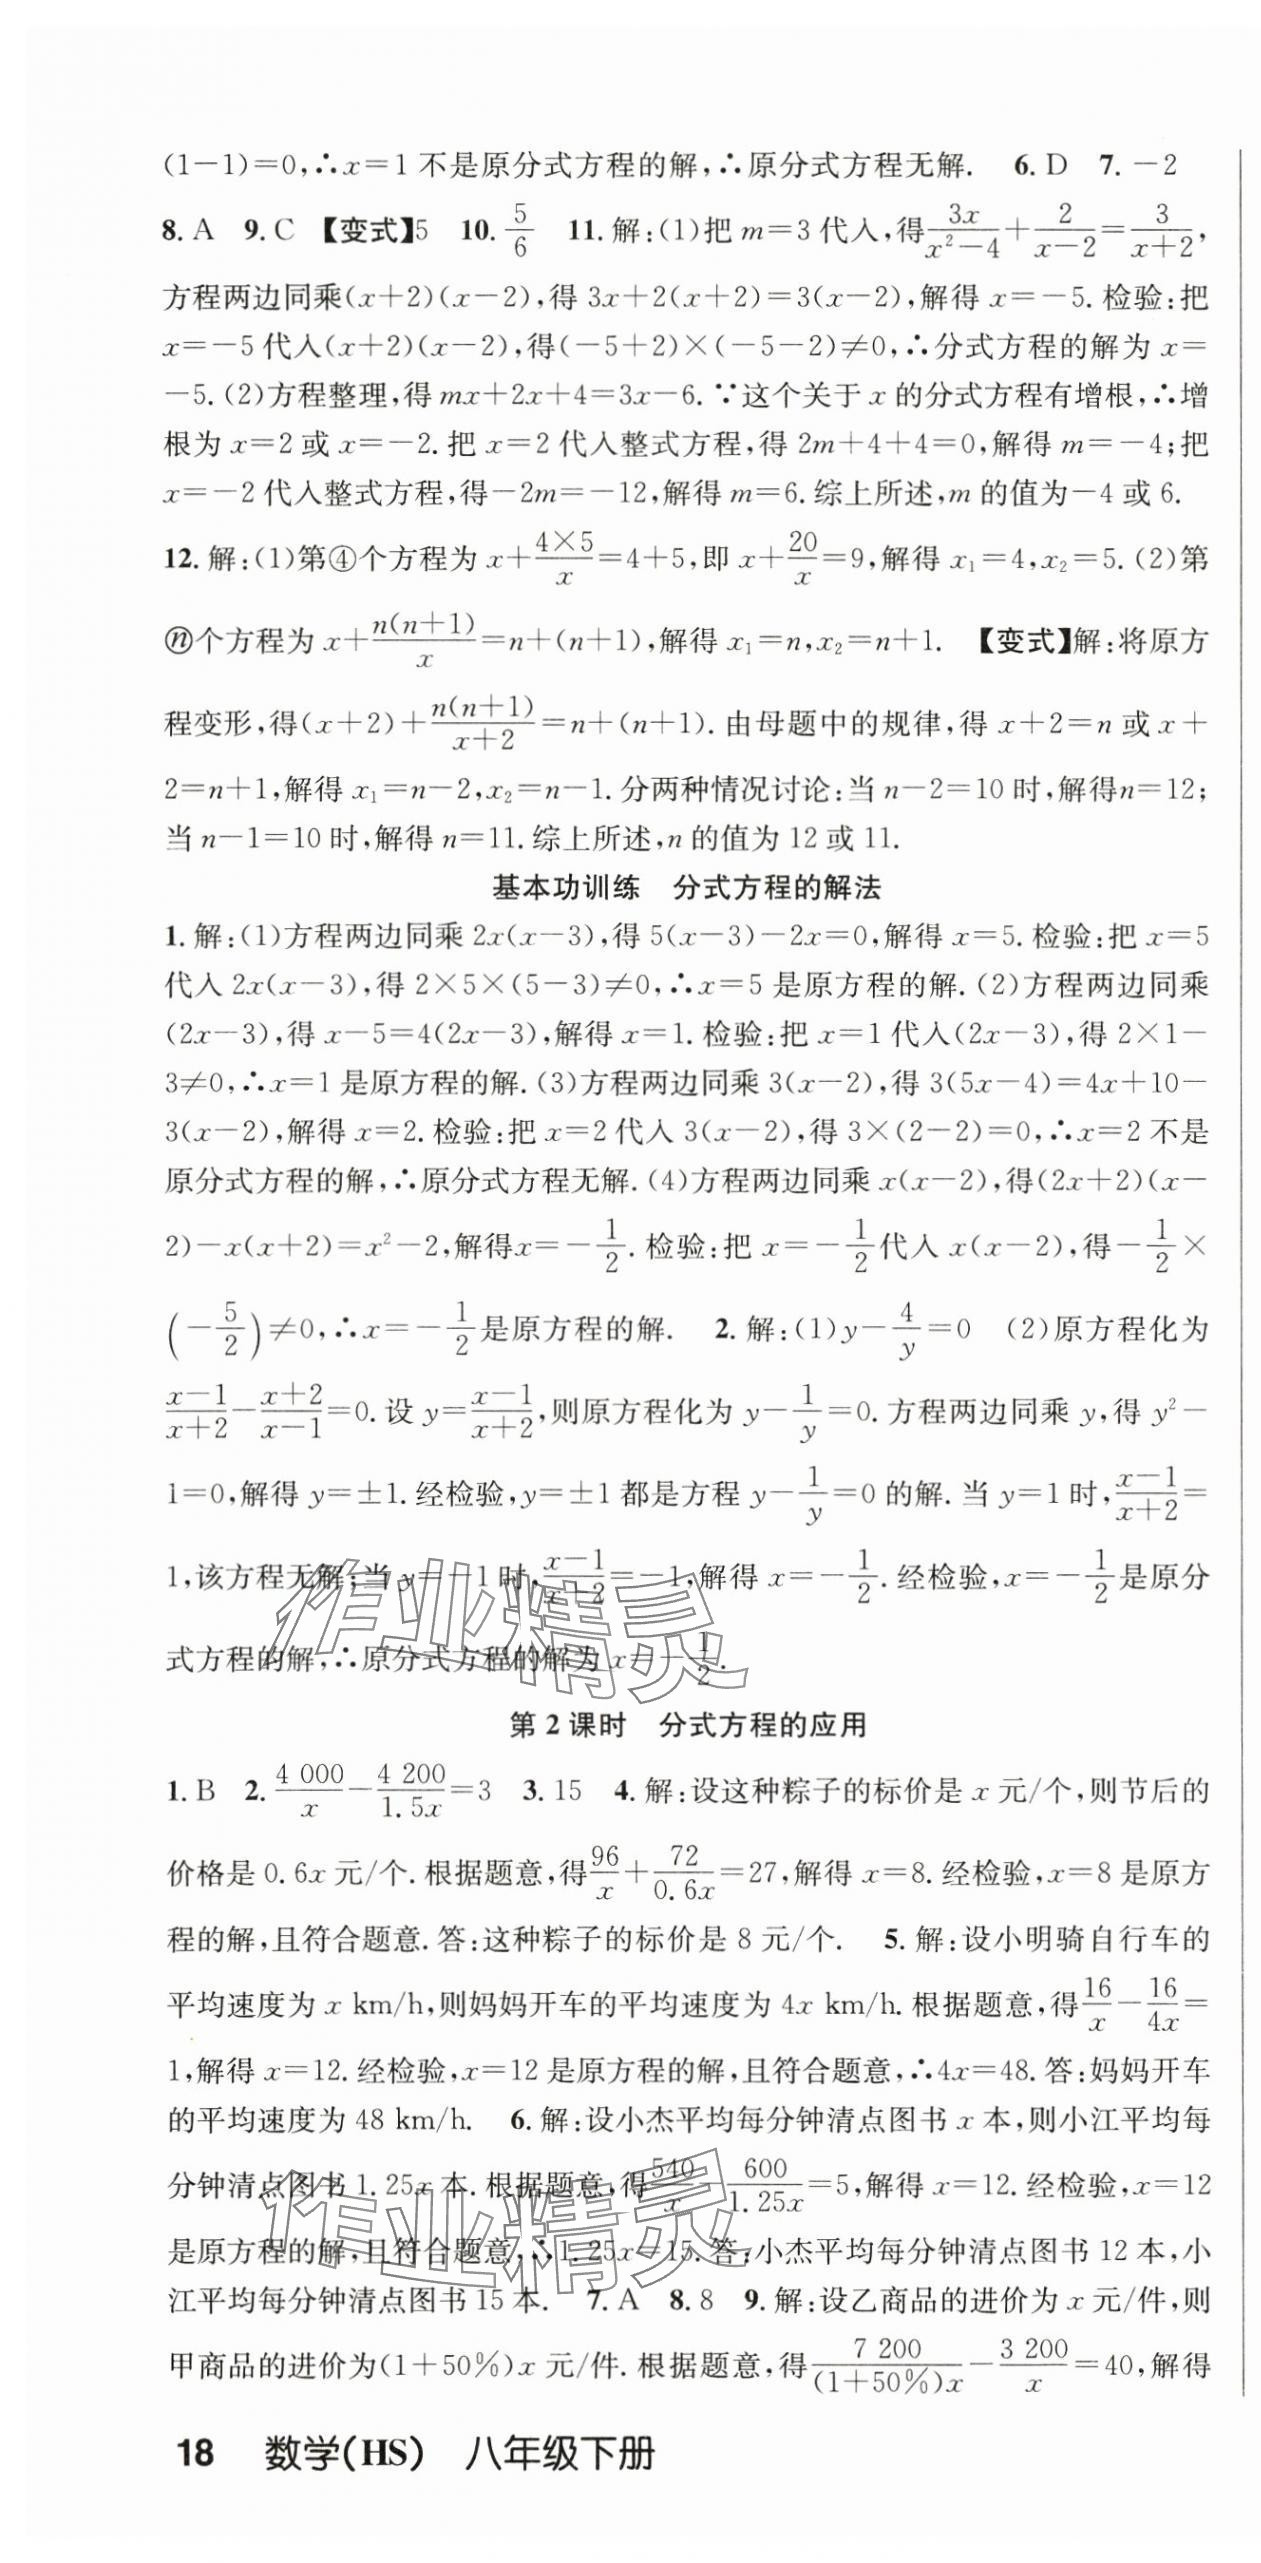 (1-1)=0,∴x=1 不是原分式方程的解,∴原分式方程无解. 6. D 7. -2
8. A 9. C 【变式】5 10. 5/6 11. 解:(1)把 m=3 代入,得 3x/(x²-4)+2/(x-2)=3/(x+2),
方程两边同乘(x+2)(x-2),得 3x+2(x+2)=3(x-2),解得 x=-5. 检验:把
x=-5 代入(x+2)(x-2),得(-5+2)×(-5-2)≠0,∴分式方程的解为 x=
-5. (2)方程整理,得 mx+2x+4=3x-6. ∵这个关于 x 的分式方程有增根,∴增
根为 x=2 或 x=-2. 把 x=2 代入整式方程,得 2m+4+4=0,解得 m=-4;把
x=-2 代入整式方程,得-2m=-12,解得 m=6. 综上所述,m 的值为-4 或 6.
12. 解:(1)第④个方程为 x+(4×5)/x=4+5,即 x+20/x=9,解得 x₁=4,x₂=5. (2)第
ⓝ个方程为 x+n(n+1)/x=n+(n+1),解得 x₁=n,x₂=n+1. 【变式】解:将原方
程变形,得(x+2)+n(n+1)/(x+2)=n+(n+1). 由母题中的规律,得 x+2=n 或 x+
2=n+1,解得 x₁=n-2,x₂=n-1. 分两种情况讨论:当 n-2=10 时,解得n=12;
当 n-1=10 时,解得 n=11. 综上所述,n 的值为 12 或 11.
基本功训练 分式方程的解法
1. 解:(1)方程两边同乘 2x(x-3),得 5(x-3)-2x=0,解得 x=5. 检验:把 x=5
代入 2x(x-3),得 2×5×(5-3)≠0,∴x=5 是原方程的解. (2)方程两边同乘
(2x-3),得 x-5=4(2x-3),解得 x=1. 检验:把 x=1 代入(2x-3),得 2×1-
3≠0,∴x=1 是原方程的解. (3)方程两边同乘 3(x-2),得 3(5x-4)=4x+10-
3(x-2),解得 x=2. 检验:把 x=2 代入 3(x-2),得 3×(2-2)=0,∴x=2 不是
原分式方程的解,∴原分式方程无解. (4)方程两边同乘 x(x-2),得(2x+2)(x-
2)-x(x+2)=x²-2,解得x=-1/2. 检验:把 x=-1/2代入 x(x-2),得-1/2×
(-5/2)≠0,∴x=-1/2是原方程的解. 2. 解:(1)y-4/y=0 (2)原方程化为
(x-1)/(x+2)-(x+2)/(x-1)=0. 设 y=(x-1)/(x+2),则原方程化为 y-1/y=0. 方程两边同乘 y,得 y²-
1=0,解得 y=±1. 经检验,y=±1 都是方程 y-1/y=0 的解. 当 y=1 时,(x-1)/(x+2)=
1,该方程无解;当 y=-1 时,(x-1)/(x+2)=-1,解得 x=-1/2. 经检验,x=-1/2是原分
式方程的解,∴原分式方程的解为 x=-1/2.
第 2 课时 分式方程的应用
1. B 2. 4 000/x-4 200/1.5x=3 3. 15 4. 解:设这种粽子的标价是 x 元/个,则节后的
价格是 0.6x 元/个. 根据题意,得96/x+72/0.6x=27,解得 x=8. 经检验,x=8 是原方
程的解,且符合题意. 答:这种粽子的标价是 8 元/个. 5. 解:设小明骑自行车的
平均速度为 x km/h,则妈妈开车的平均速度为 4x km/h. 根据题意,得16/x-16/4x=
1,解得 x=12. 经检验,x=12 是原方程的解,且符合题意,∴4x=48. 答:妈妈开车
的平均速度为 48 km/h. 6. 解:设小杰平均每分钟清点图书 x 本,则小江平均每
分钟清点图书 1.25x 本. 根据题意,得540/x-600/1.25x=5,解得 x=12. 经检验,x=12
是原方程的解,且符合题意,∴1.25x=15. 答:小杰平均每分钟清点图书 12 本,小
江平均每分钟清点图书 15 本. 7. A 8. 8 9. 解:设乙商品的进价为 x 元/件,则
甲商品的进价为(1+50%)x 元/件. 根据题意,得7 200/(1+50%)x-3 200/x=40,解得
18 数学(HS) 八年级下册
作业精灵
作业精灵